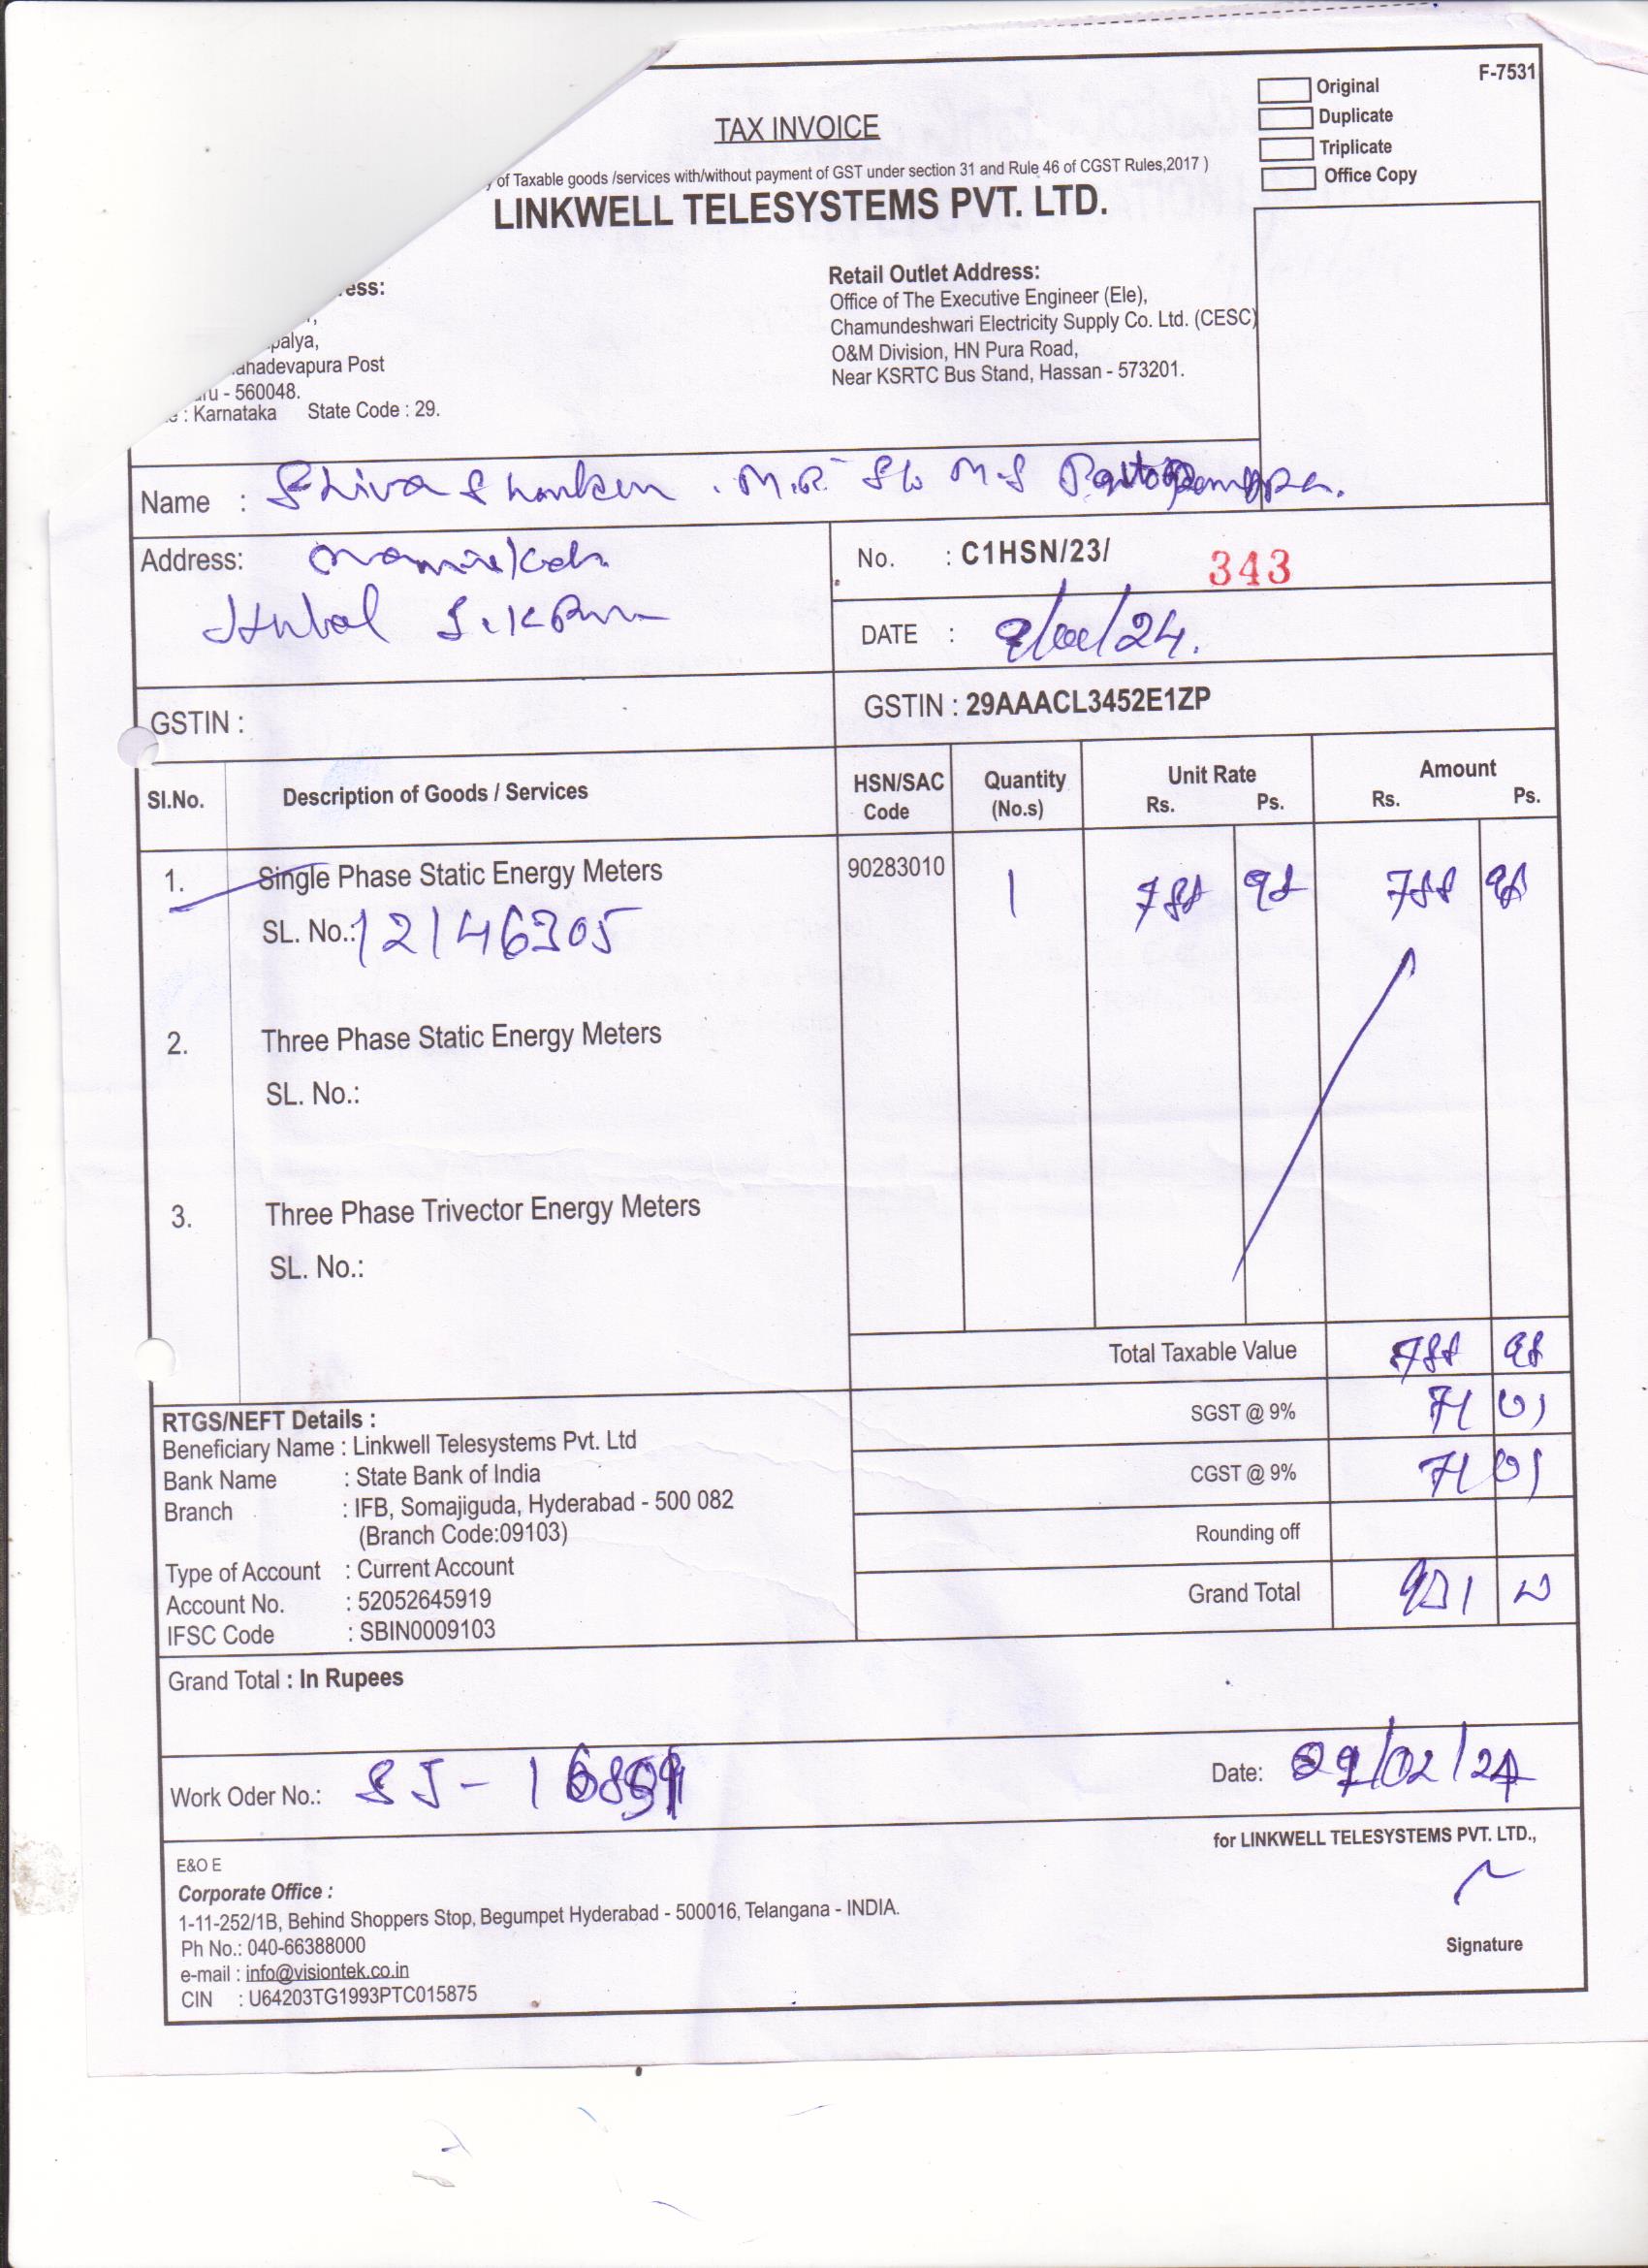 F-7531
Original
Duplicate
Triplicate
Office Copy
TAX INVOICE
of Taxable goods /services with/without payment of GST under section 31 and Rule 46 of CGST Rules,2017 )
LINKWELL TELESYSTEMS PVT. LTD.
ess:
palya,
ahadevapura Post
ru - 560048.
: Karnataka State Code : 29.
Retail Outlet Address:
Office of The Executive Engineer (Ele),
Chamundeshwari Electricity Supply Co. Ltd. (CESC)
O&M Division, HN Pura Road,
Near KSRTC Bus Stand, Hassan - 573201.
Name : Shiva Shanken . M.R. S/o M.S
Address:
No. : C1HSN/23/ 343
DATE :
GSTIN :
GSTIN : 29AAACL3452E1ZP
SI.No. Description of Goods / Services HSN/SAC Code Quantity (No.s) Unit Rate Rs. Ps. Amount Rs. Ps.
1. Single Phase Static Energy Meters 90283010 1 788 98 788 98
SL. No.: 12146305
2. Three Phase Static Energy Meters
SL. No.:
3. Three Phase Trivector Energy Meters
SL. No.:
Total Taxable Value 788 98
SGST @ 9% 71 01
CGST @ 9% 71 01
Rounding off
Grand Total 931 00
RTGS/NEFT Details :
Beneficiary Name : Linkwell Telesystems Pvt. Ltd
Bank Name : State Bank of India
Branch : IFB, Somajiguda, Hyderabad - 500 082
(Branch Code:09103)
Type of Account : Current Account
Account No. : 52052645919
IFSC Code : SBIN0009103
Grand Total : In Rupees
Work Oder No.: SJ-
Date: 09/02/24
for LINKWELL TELESYSTEMS PVT. LTD.,
Signature
E&O E
Corporate Office :
1-11-252/1B, Behind Shoppers Stop, Begumpet Hyderabad - 500016, Telangana - INDIA.
Ph No.: 040-66388000
e-mail : info@visiontek.co.in
CIN : U64203TG1993PTC015875